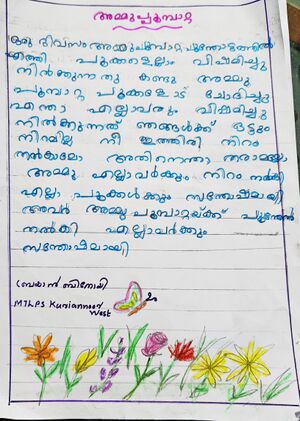 അമ്മുപ്പൂമ്പാറ്റ
ഒരു ദിവസം അമ്മുപൂമ്പാറ്റ പൂന്തോട്ടത്തിൽ
എത്തി പൂക്കളെല്ലാം വിഷമിച്ചു
നിൽക്കുന്നതു കണ്ടു അമ്മു
പൂമ്പാറ്റ പൂക്കളോട് ചോദിച്ചു
എന്താ എല്ലാവരും വിഷമിച്ചു
നിൽക്കുന്നത് ഞങ്ങൾക്ക് ഒട്ടും
നിറമില്ല നീ ഇത്തിരി നിറം
നൽകാമോ അതിനെന്താ തരാമല്ലോ
അമ്മു എല്ലാവർക്കും നിറം നൽകി
എല്ലാ പൂക്കൾക്കും സന്തോഷമായി
അവർ അമ്മുപൂമ്പാറ്റയ്ക്ക് പൂന്തേൻ
നൽകി എല്ലാവർക്കും
സന്തോഷമായി
ബ്രയാൻ ബിനോയി
MTLPS Kuriannoor
West